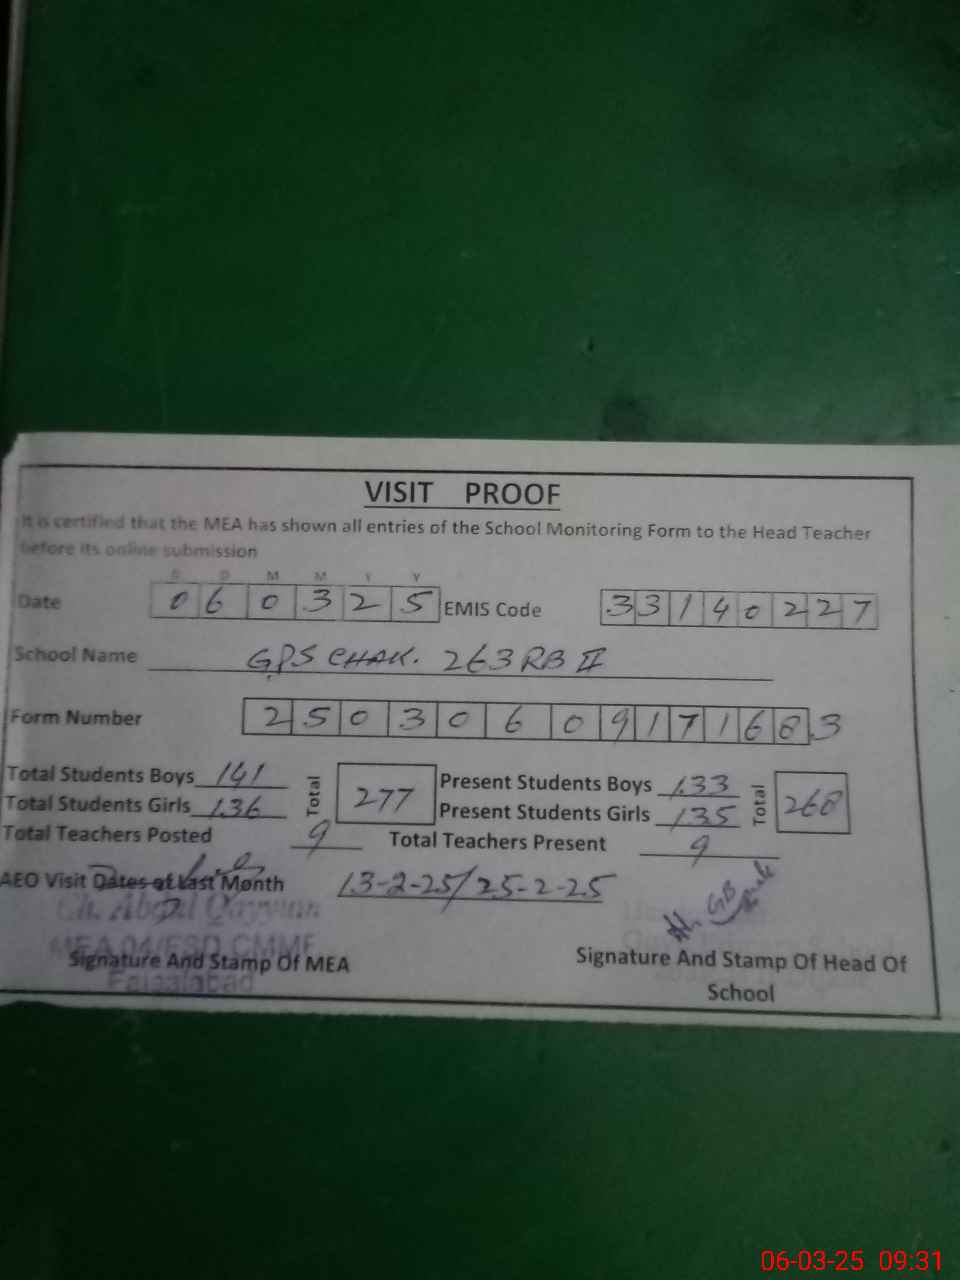 VISIT PROOF
It is certified that the MEA has shown all entries of the School Monitoring Form to the Head Teacher
before its online submission
D D M M Y Y
Date 0 6 0 3 2 5 EMIS Code 3 3 1 4 0 2 2 7
School Name GPS CHAK. 263 RB II
Form Number 2 5 0 3 0 6 0 9 1 7 1 6 8 3
Total Students Boys 141 Total 277 Present Students Boys 133 Total 268
Total Students Girls 136 Present Students Girls 135
Total Teachers Posted 9 Total Teachers Present 9
AEO Visit Dates of Last Month 13-2-25/25-2-25
Ch. Abdul Qayyum
MEA 04/ESD CMMF
Faisalabad
Signature And Stamp Of MEA
Signature And Stamp Of Head Of
School
06-03-25 09:31